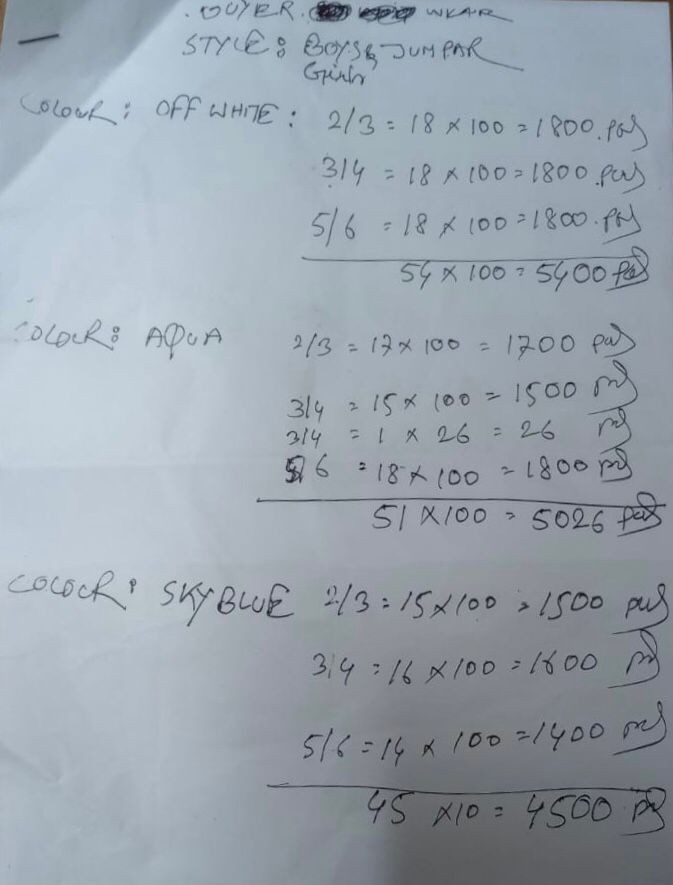 . BUYER. WEAR
STYLE: BOYS & JUMPAR
Girls
COLOUR: OFF WHITE: 2/3 = 18 x 100 = 1800. pcs
3/4 = 18 x 100 = 1800. pcs
5/6 = 18 x 100 = 1800. pcs
54 x 100 = 5400 pcs
COLOUR: AQUA 2/3 = 17 x 100 = 1700 pcs
3/4 = 15 x 100 = 1500 pcs
3/4 = 1 x 26 = 26 pcs
5/6 = 18 x 100 = 1800 pcs
51 x 100 = 5026 pcs
COLOUR: SKY BLUE 2/3 = 15 x 100 = 1500 pcs
3/4 = 16 x 100 = 1600 pcs
5/6 = 14 x 100 = 1400 pcs
45 x 10 = 4500 pcs